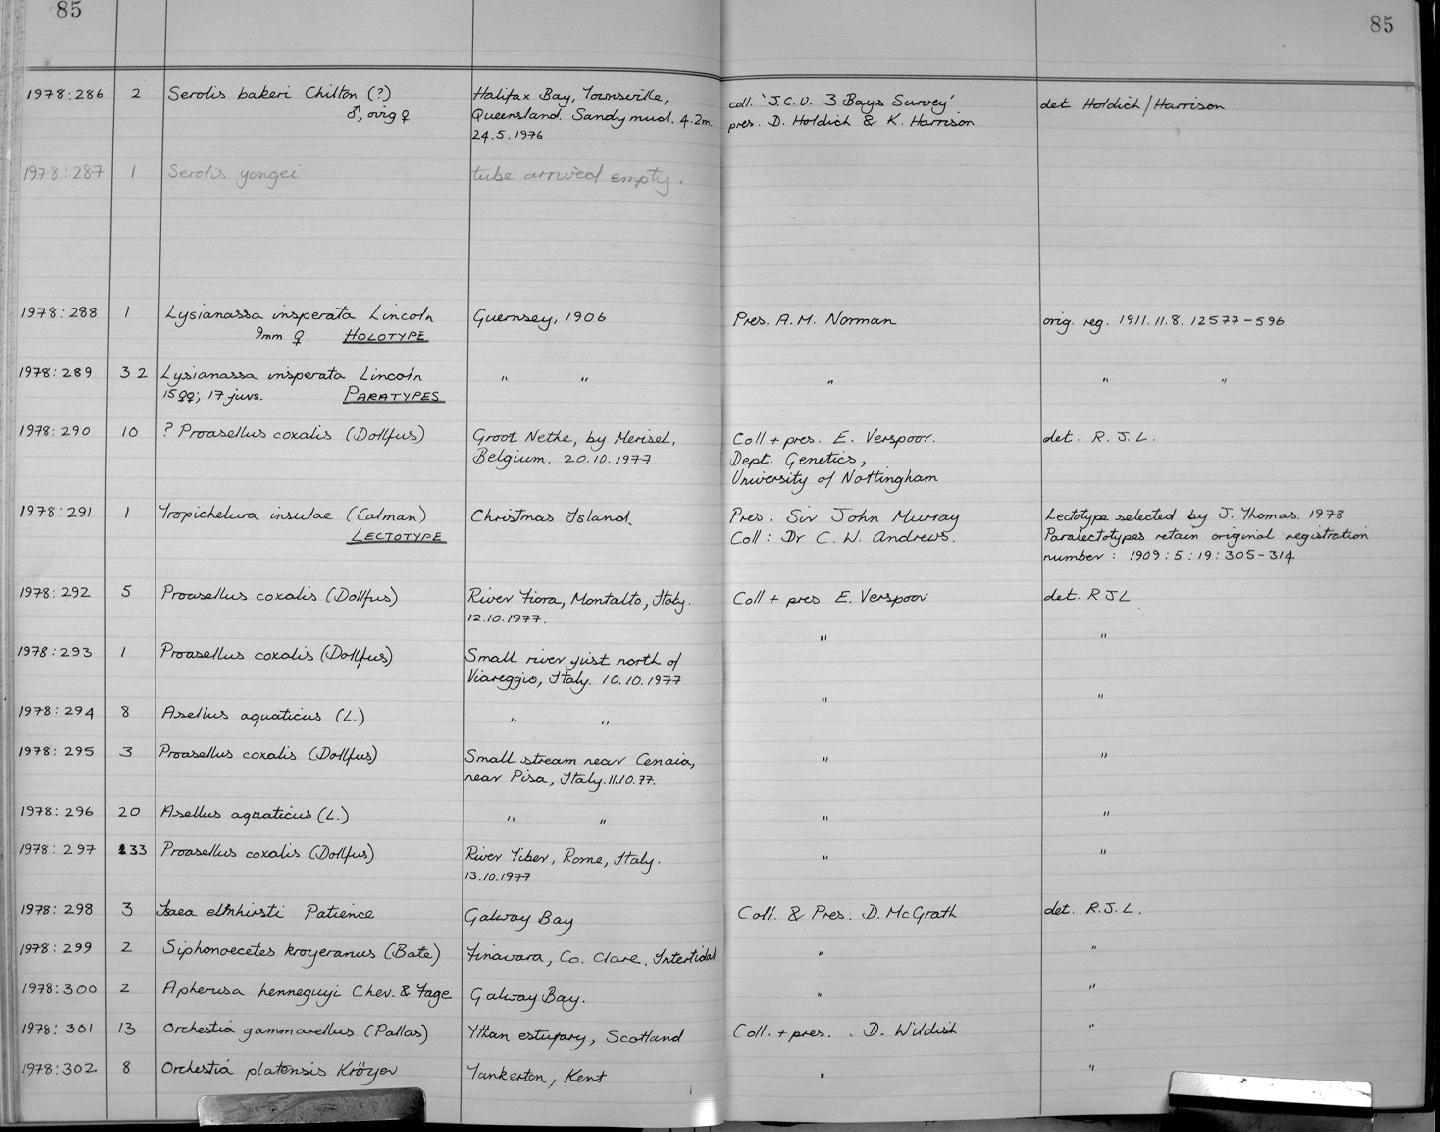 85
85
1978:286 2 Serolis bakeri Chilton (?) Halifax Bay, Townsville, coll. 'J.C.U. 3 Bays Survey' det Holdich/Harrison
♂, ovig ♀ Queensland. Sandy mud. 4.2m. pres. D. Holdich & K. Harrison
24.5.1976
1978:287 1 Serolis yongei tube arrived empty.
1978:288 1 Lysianassa insperata Lincoln Guernsey, 1906 Pres. A.M. Norman orig. reg. 1911.11.8.12577-596
9mm ♀ HOLOTYPE
1978:289 32 Lysianassa insperata Lincoln " " " " "
15♀♀; 17 juvs. PARATYPES
1978:290 10 ? Proasellus coxalis (Dollfus) Groot Nethe, by Merisel, Coll + pres. E. Verspoor. det. R.J.L.
Belgium. 20.10.1977 Dept. Genetics,
University of Nottingham
1978:291 1 Tropichelura insulae (Calman) Christmas Island. Pres. Sir John Murray Lectotype selected by J. Thomas. 1978
LECTOTYPE Coll: Dr C. W. Andrews. Paralectotypes retain original registration
number: 1909:5:19:305-314
1978:292 5 Proasellus coxalis (Dollfus) River Fiora, Montalto, Italy. Coll + pres E. Verspoor det. RJL
12.10.1977. " "
1978:293 1 Proasellus coxalis (Dollfus) Small river just north of
Viareggio, Italy. 10.10.1977 " "
1978:294 8 Asellus aquaticus (L.) " "
1978:295 3 Proasellus coxalis (Dollfus) Small stream near Cenaia, " "
near Pisa, Italy. 11.10.77.
1978:296 20 Asellus aquaticus (L.) " " " "
1978:297 33 Proasellus coxalis (Dollfus) River Tiber, Rome, Italy. " "
13.10.1977
1978:298 3 Isaea elmhirsti Patience Galway Bay Coll. & Pres. D. McGrath det. R.J.L.
1978:299 2 Siphonoecetes kroyeranus (Bate) Finavara, Co. Clare. Intertidal " "
1978:300 2 Apherusa henneguyi Chev. & Fage Galway Bay. " "
1978:301 13 Orchestia gammarellus (Pallas) Ythan estuary, Scotland Coll. + pres. . D. Wildish "
1978:302 8 Orchestia platensis Kröyer Tankerton, Kent " "